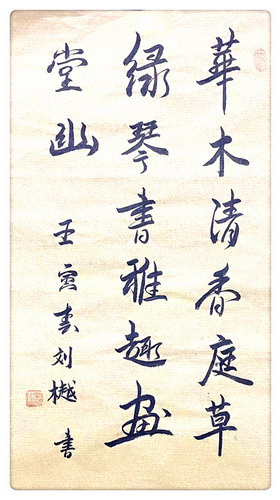 華木清香庭草
緑琴書雅趣画
堂幽
壬寅春刘樾书